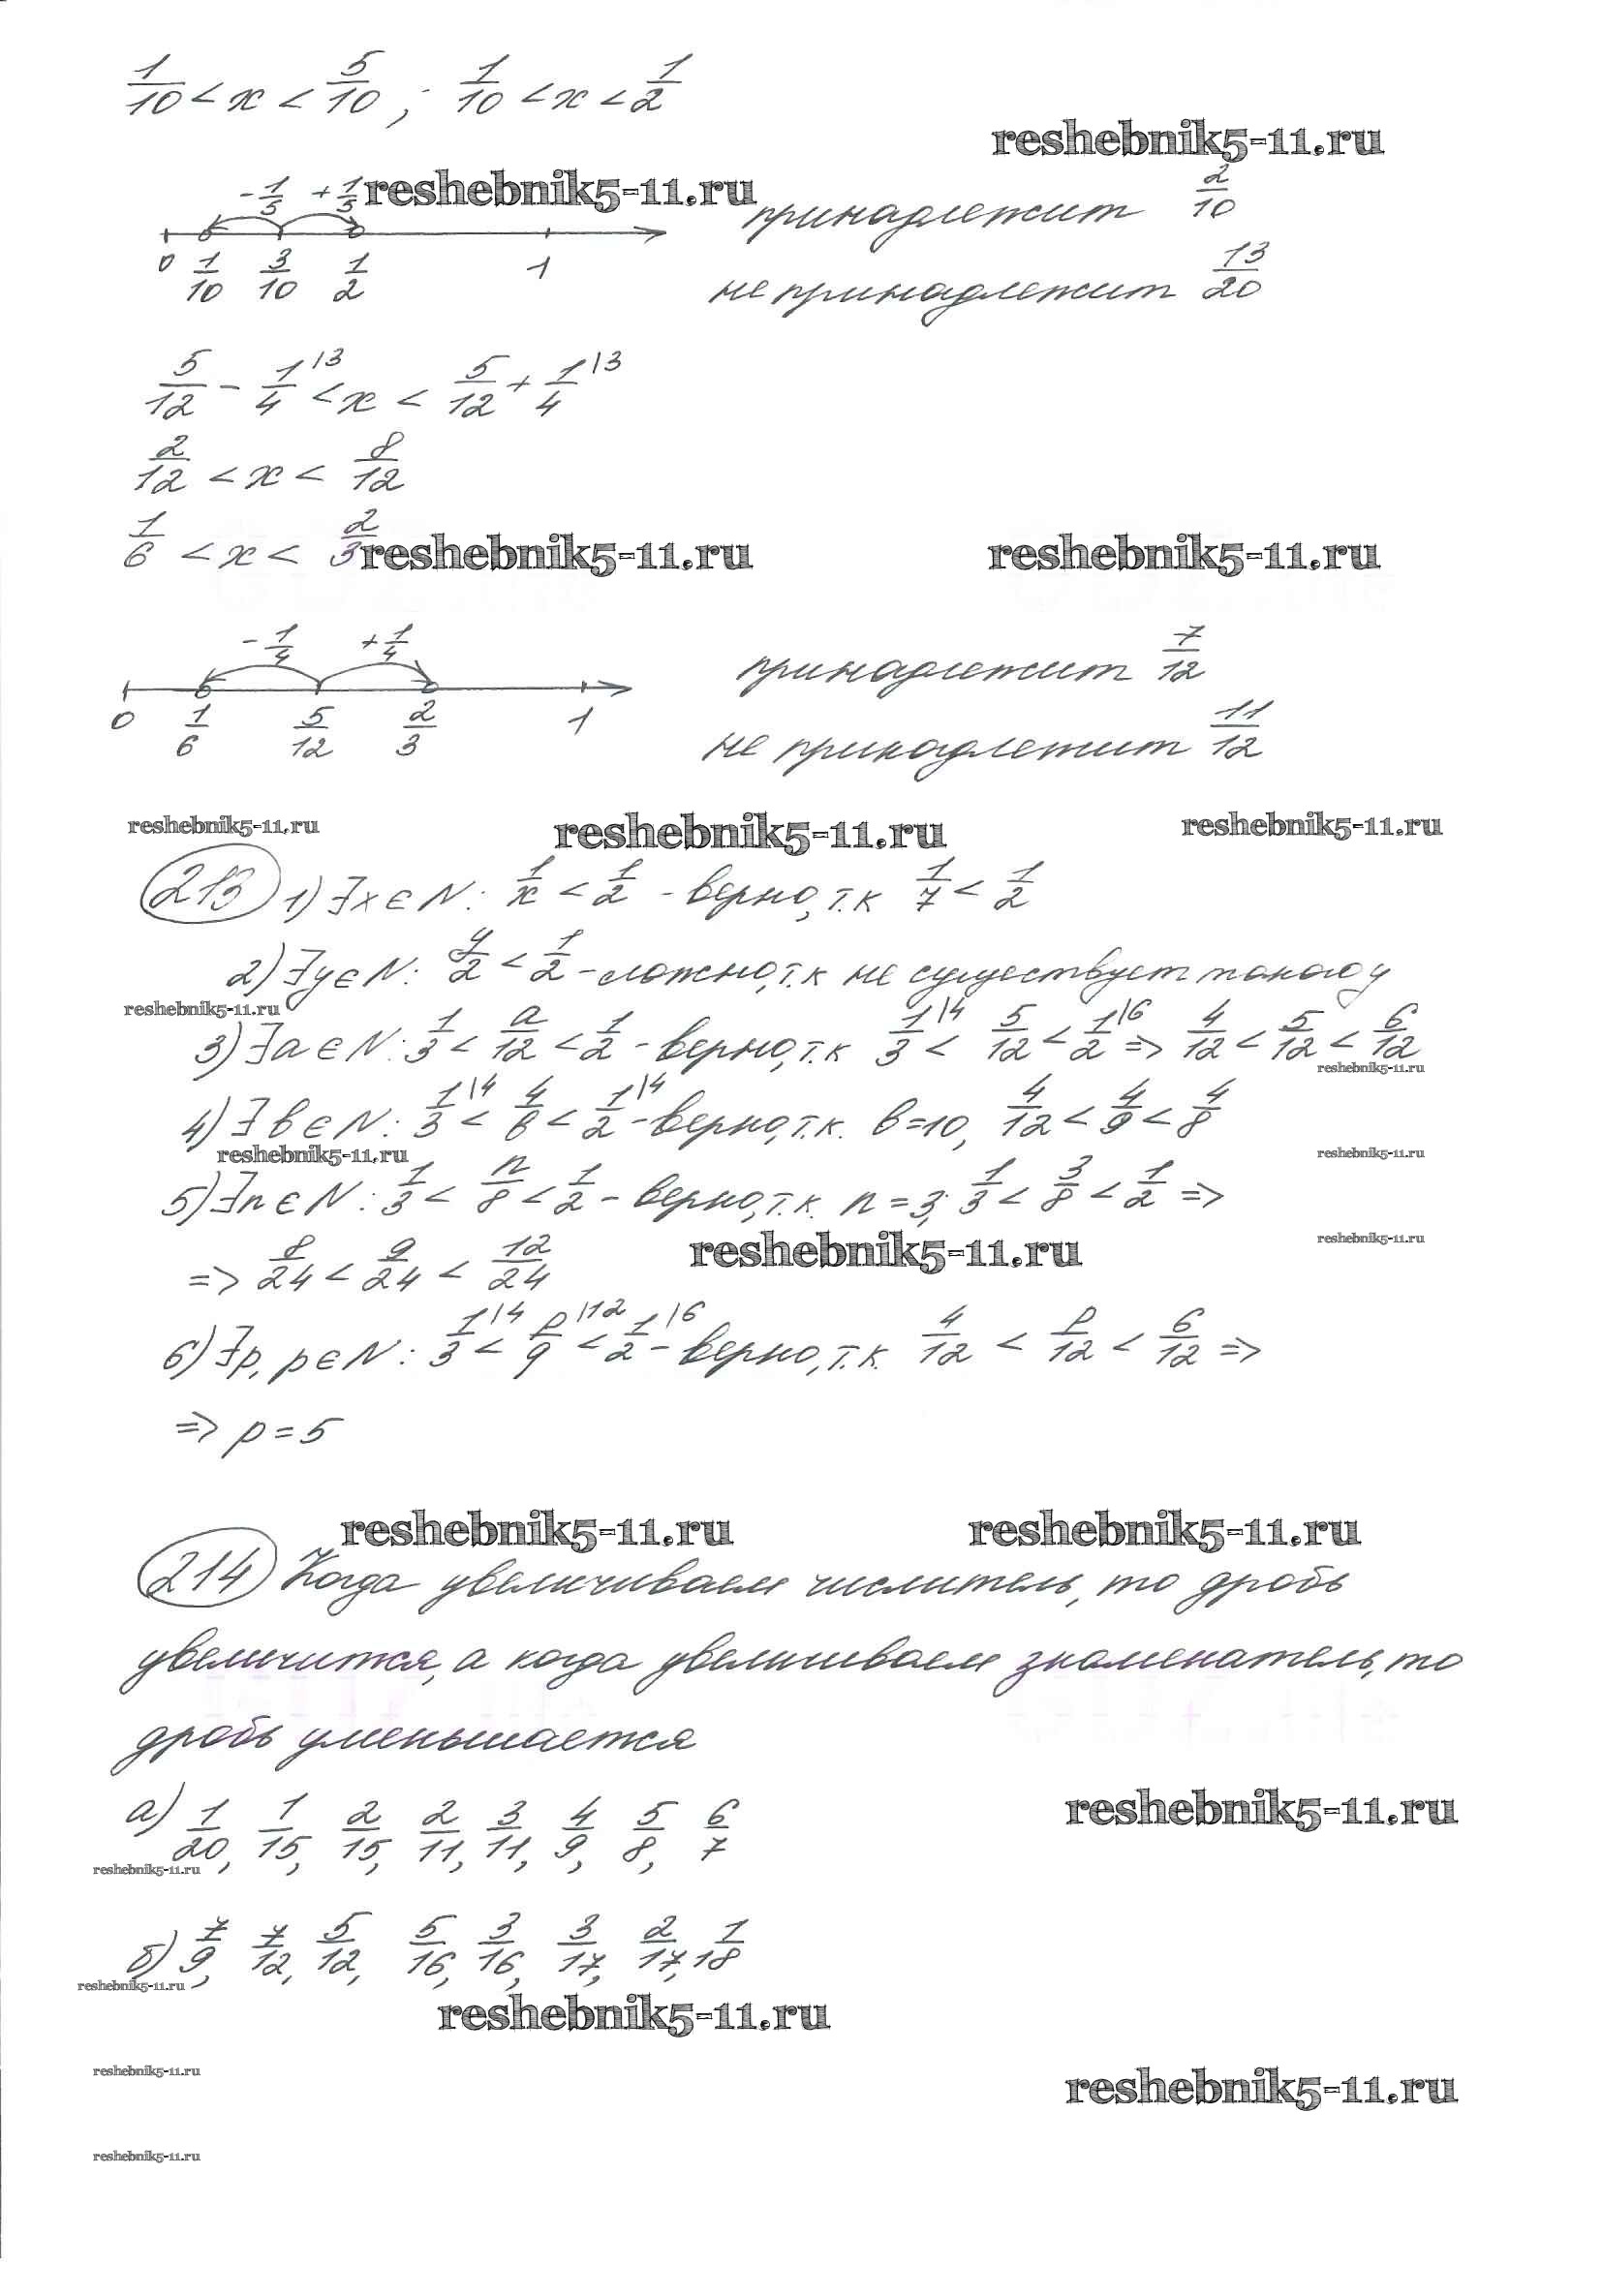 1/10 < x < 5/10 ; 1/10 < x < 1/2
reshebnik5-11.ru
-1/5 +1/5 reshebnik5-11.ru
принадлежит 2/10
0 1/10 3/10 1/2 1
не принадлежит 13/20
5/12 - 1/4 |3 < x < 5/12 + 1/4 |3
2/12 < x < 8/12
1/6 < x < 2/3 reshebnik5-11.ru reshebnik5-11.ru
-1/4 +1/4
принадлежит 7/12
0 1/6 5/12 2/3 1
не принадлежит 11/12
reshebnik5-11.ru reshebnik5-11.ru reshebnik5-11.ru
213 1) ∃x∈N: 1/x < 1/2 - верно, т.к 1/7 < 1/2
2) ∃y∈N: y/2 < 1/2 - ложно, т.к не существует такого y
reshebnik5-11.ru
3) ∃a∈N: 1/3 < a/12 < 1/2 - верно, т.к 1/3 |4 < 5/12 < 1/2 |6 => 4/12 < 5/12 < 6/12
reshebnik5-11.ru
4) ∃в∈N: 1/3 |4 < 4/в < 1/2 |4 - верно, т.к. в=10, 4/12 < 4/9 < 4/8
reshebnik5-11.ru reshebnik5-11.ru
5) ∃n∈N: 1/3 < n/8 < 1/2 - верно, т.к. n=3; 1/3 < 3/8 < 1/2 =>
reshebnik5-11.ru reshebnik5-11.ru
=> 8/24 < 9/24 < 12/24
6) ∃p, p∈N: 1/3 |4 < p/9 |12 < 1/2 |6 - верно, т.к. 4/12 < p/12 < 6/12 =>
=> p=5
reshebnik5-11.ru reshebnik5-11.ru
214 Когда увеличиваем числитель, то дробь
увеличится, а когда увеличиваем знаменатель, то
дробь уменьшается
reshebnik5-11.ru
а) 1/20, 1/15, 2/15, 2/11, 3/11, 4/9, 5/8, 6/7
reshebnik5-11.ru
б) 7/9, 7/12, 5/12, 5/16, 3/16, 3/17, 2/17, 1/18
reshebnik5-11.ru
reshebnik5-11.ru
reshebnik5-11.ru
reshebnik5-11.ru
reshebnik5-11.ru